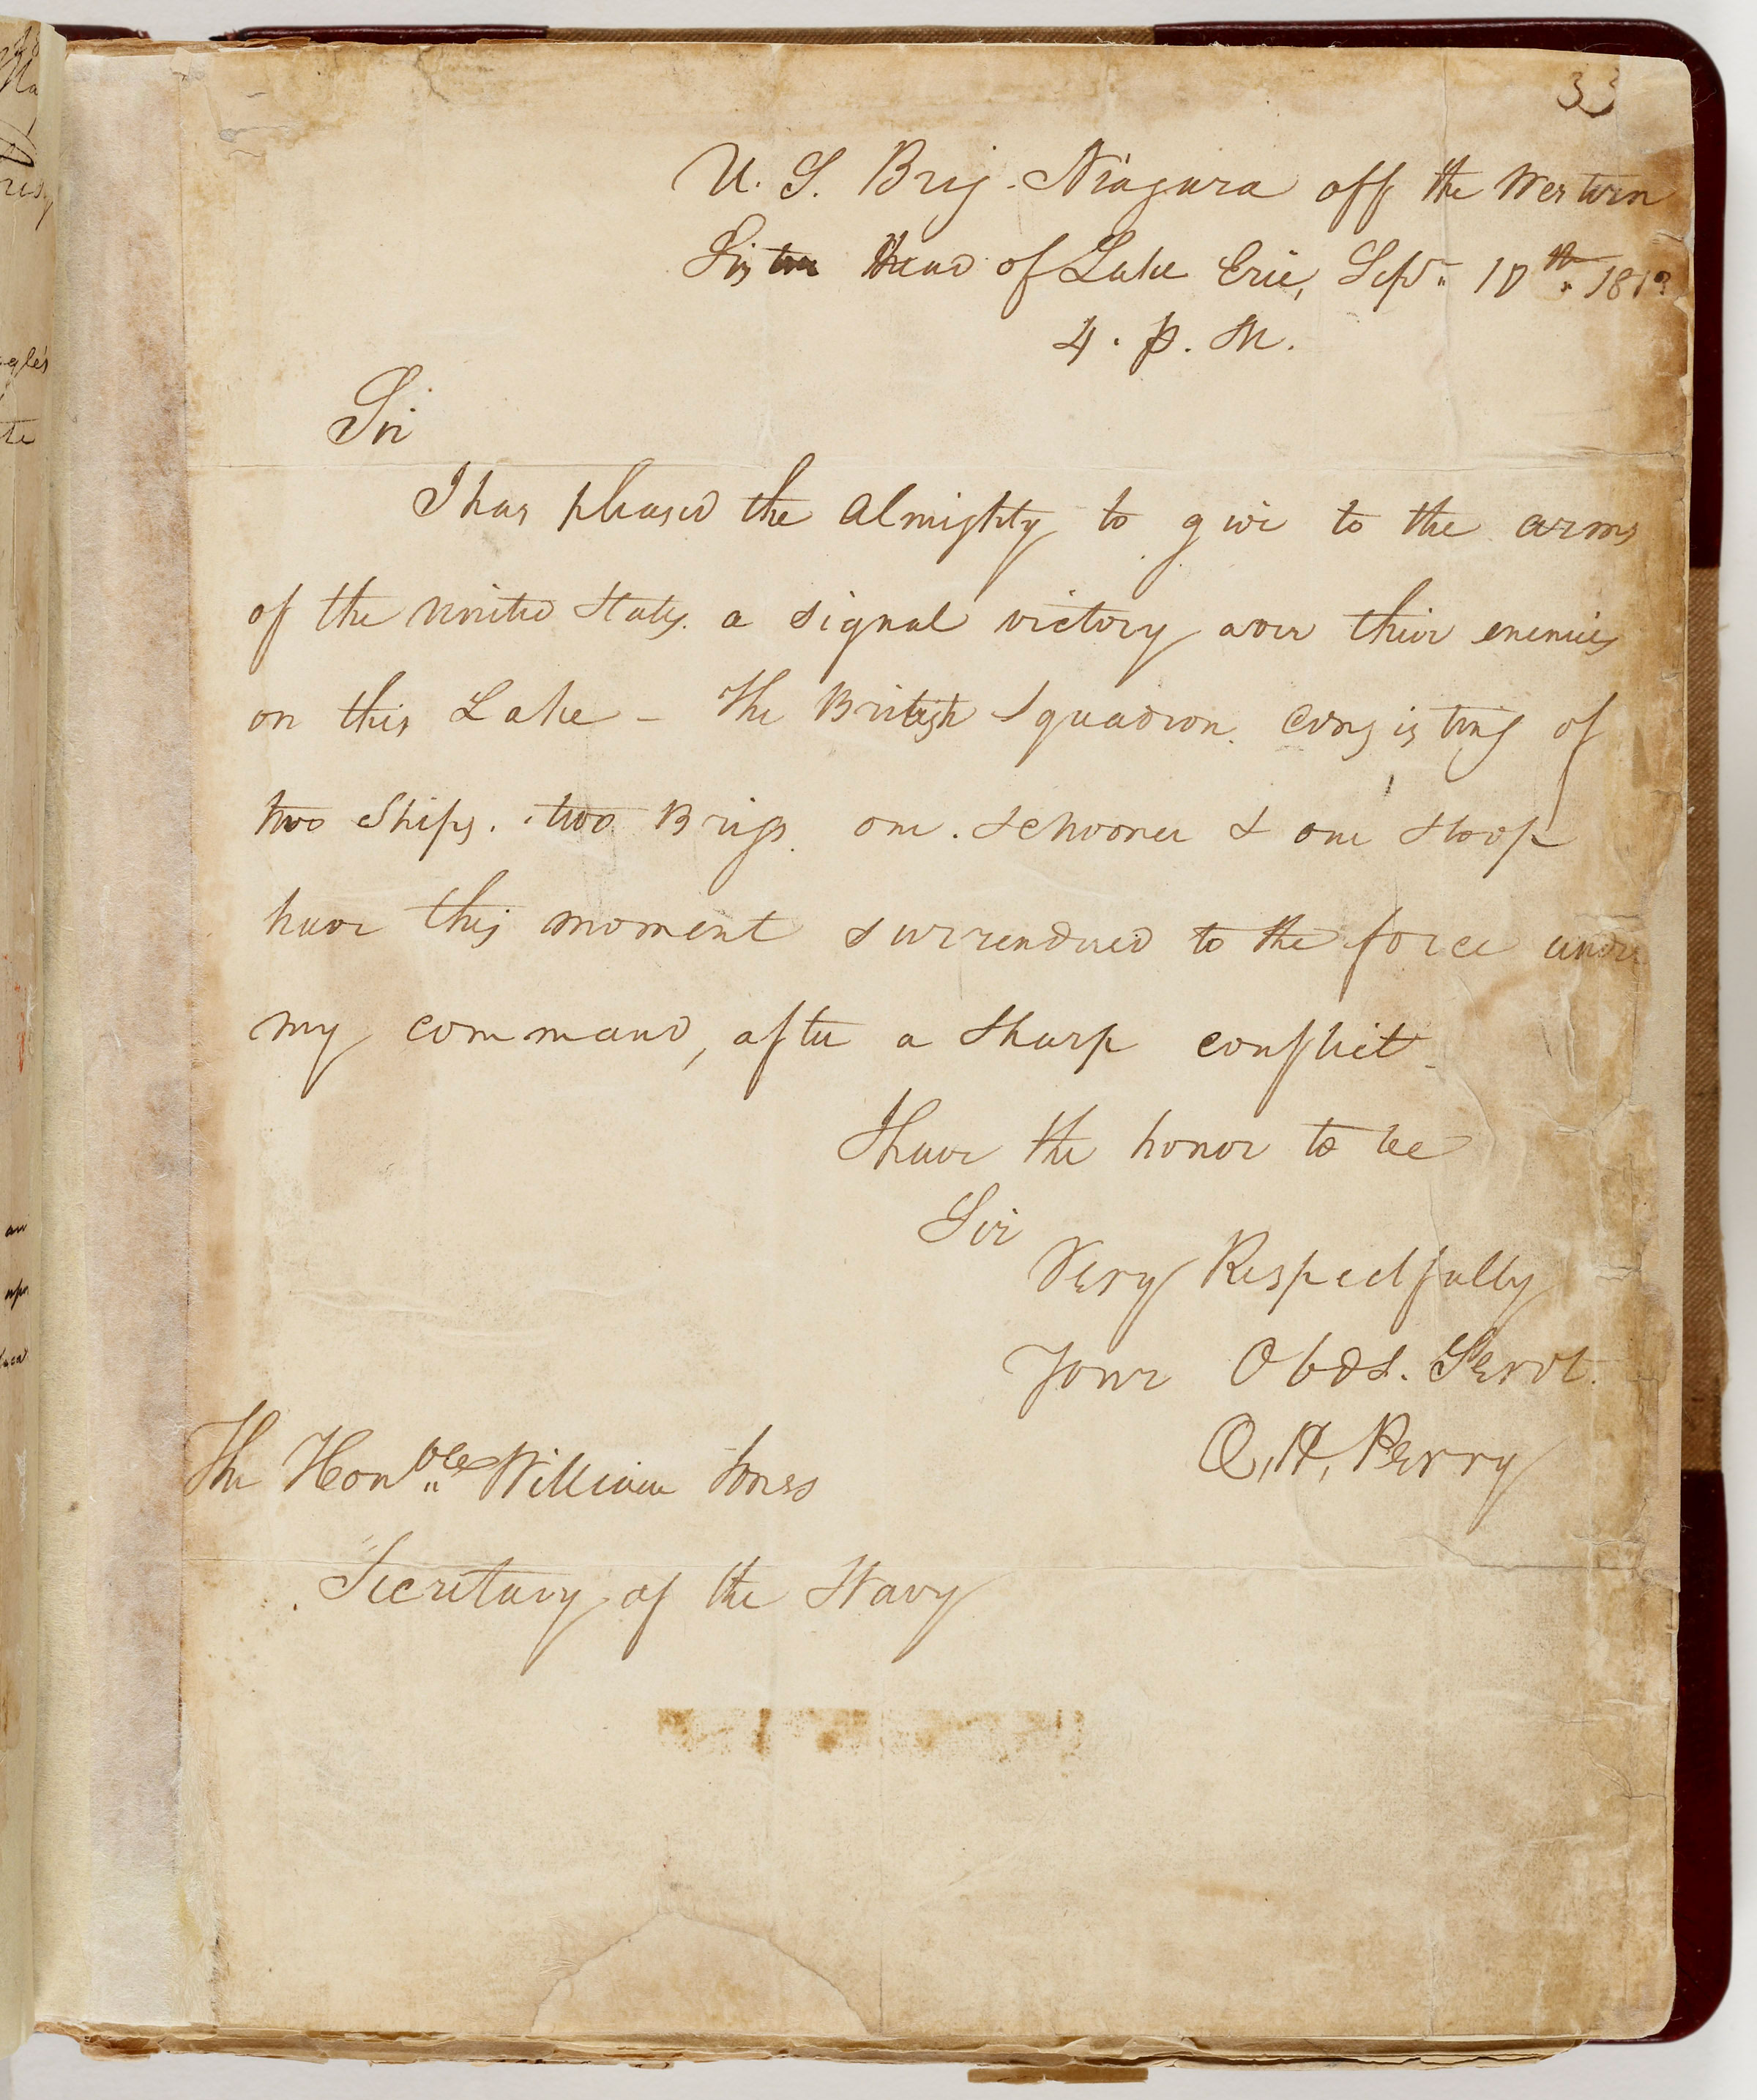 33
U. S. Brig Niagara off the Western
Sister Head of Lake Erie, Sepr. 10th. 1813
4. p. M.
Sir
I has pleased the Almighty to give to the arms
of the United States. a signal victory over their enemies
on this Lake - The British Squadron. consisting of
two Ships. two Brigs. one. Schooner & one Sloop
have this moment surrendered to the force under
my command, after a Sharp conflict.
I have the honor to be
Sir
Very Respectfully
Your Obdt. Servt.
O. H. Perry
The Honble. William Jones
Secretary of the Navy